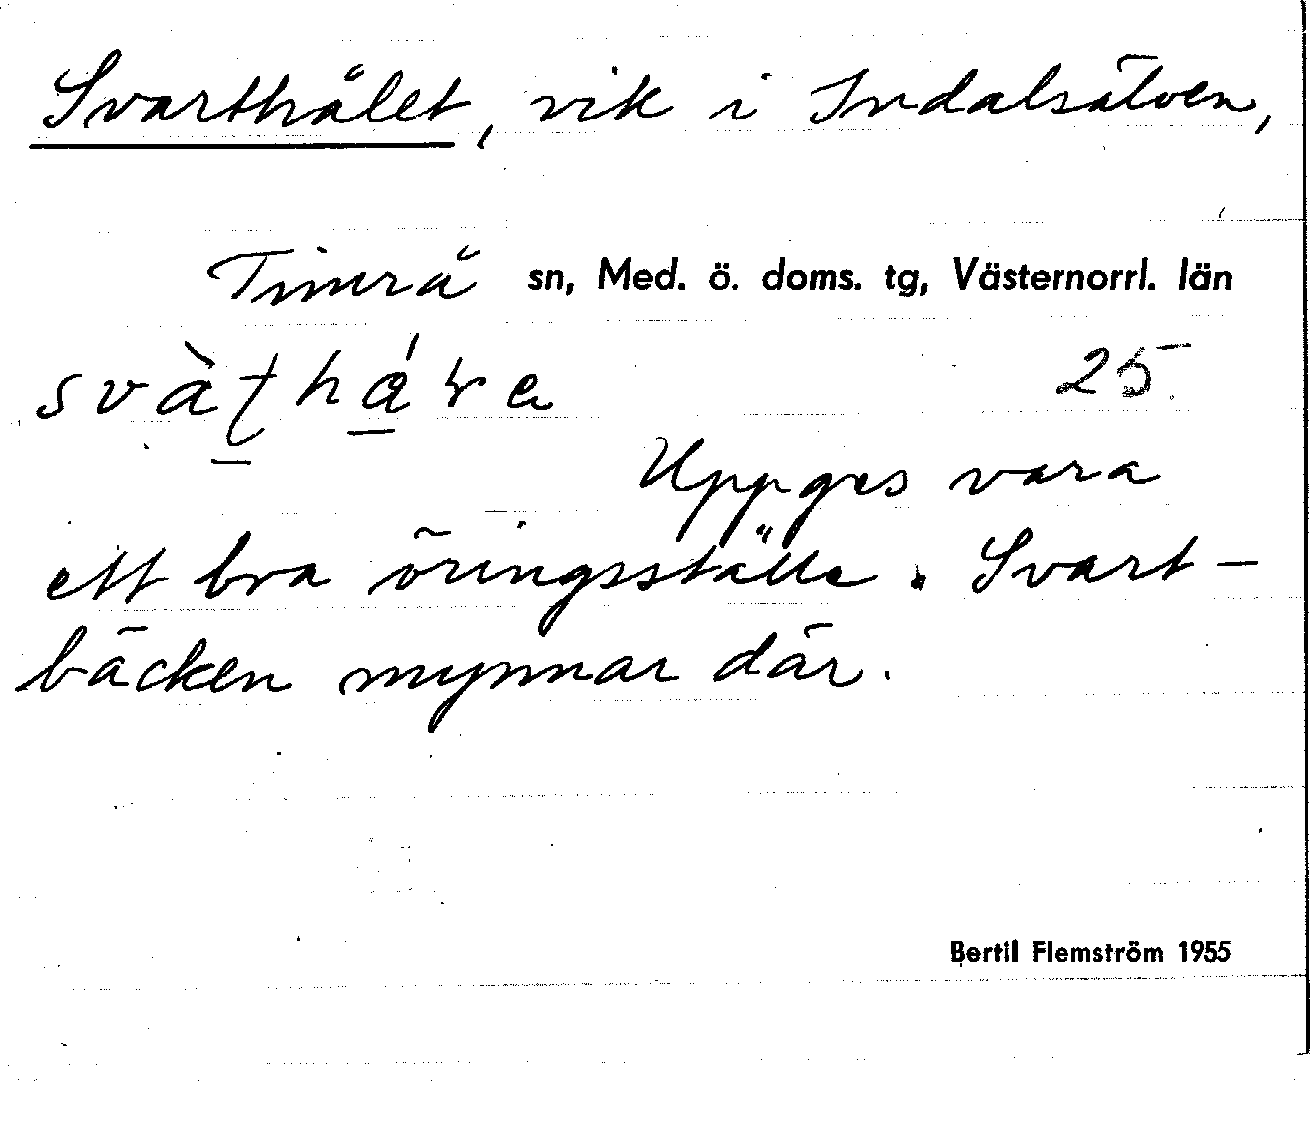 Svarthålet, vik i Indalsälven,
Timrå sn, Med. ö. doms. tg, Västernorrl. län
25
Uppges vara
ett bra öringsställe. Svart-
bäcken mynnar där.
Bertil Flemström 1955